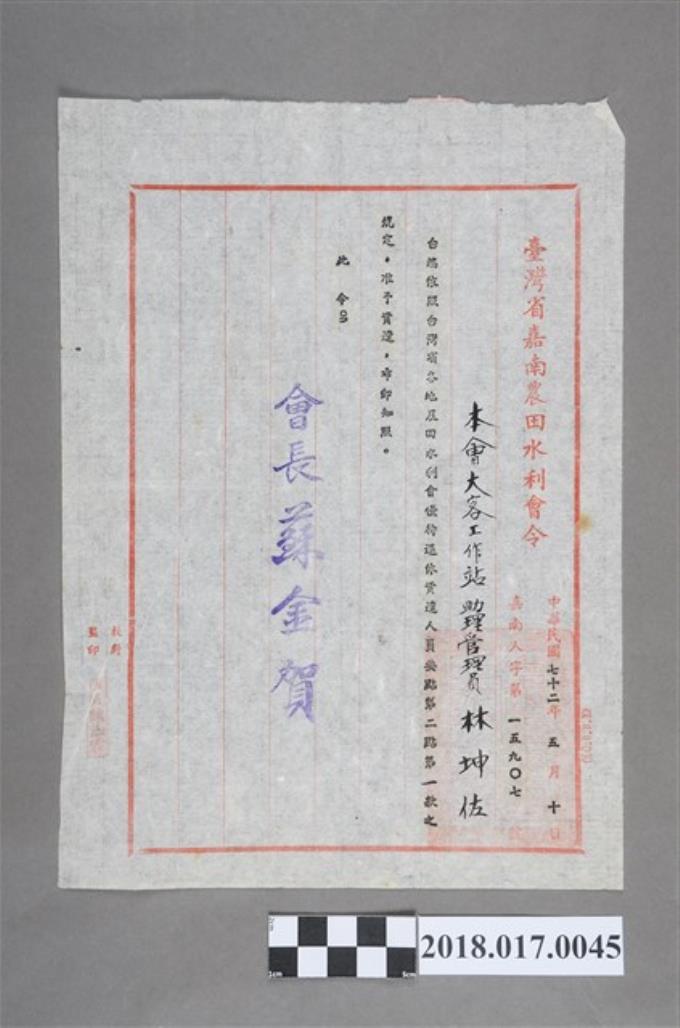 臺灣省嘉南農田水利會令
中華民國七十二年五月十日
嘉南人字第一五九〇七號
本會大客工作站助理管理員林坤佐
台端依照台灣省各地農田水利會優待退休資遣人員要點第二點第一款之
規定,准予資遣,希即知照。
此令。
會長蘇金賀
校對
監印
2018.017.0045
1cm
5cm